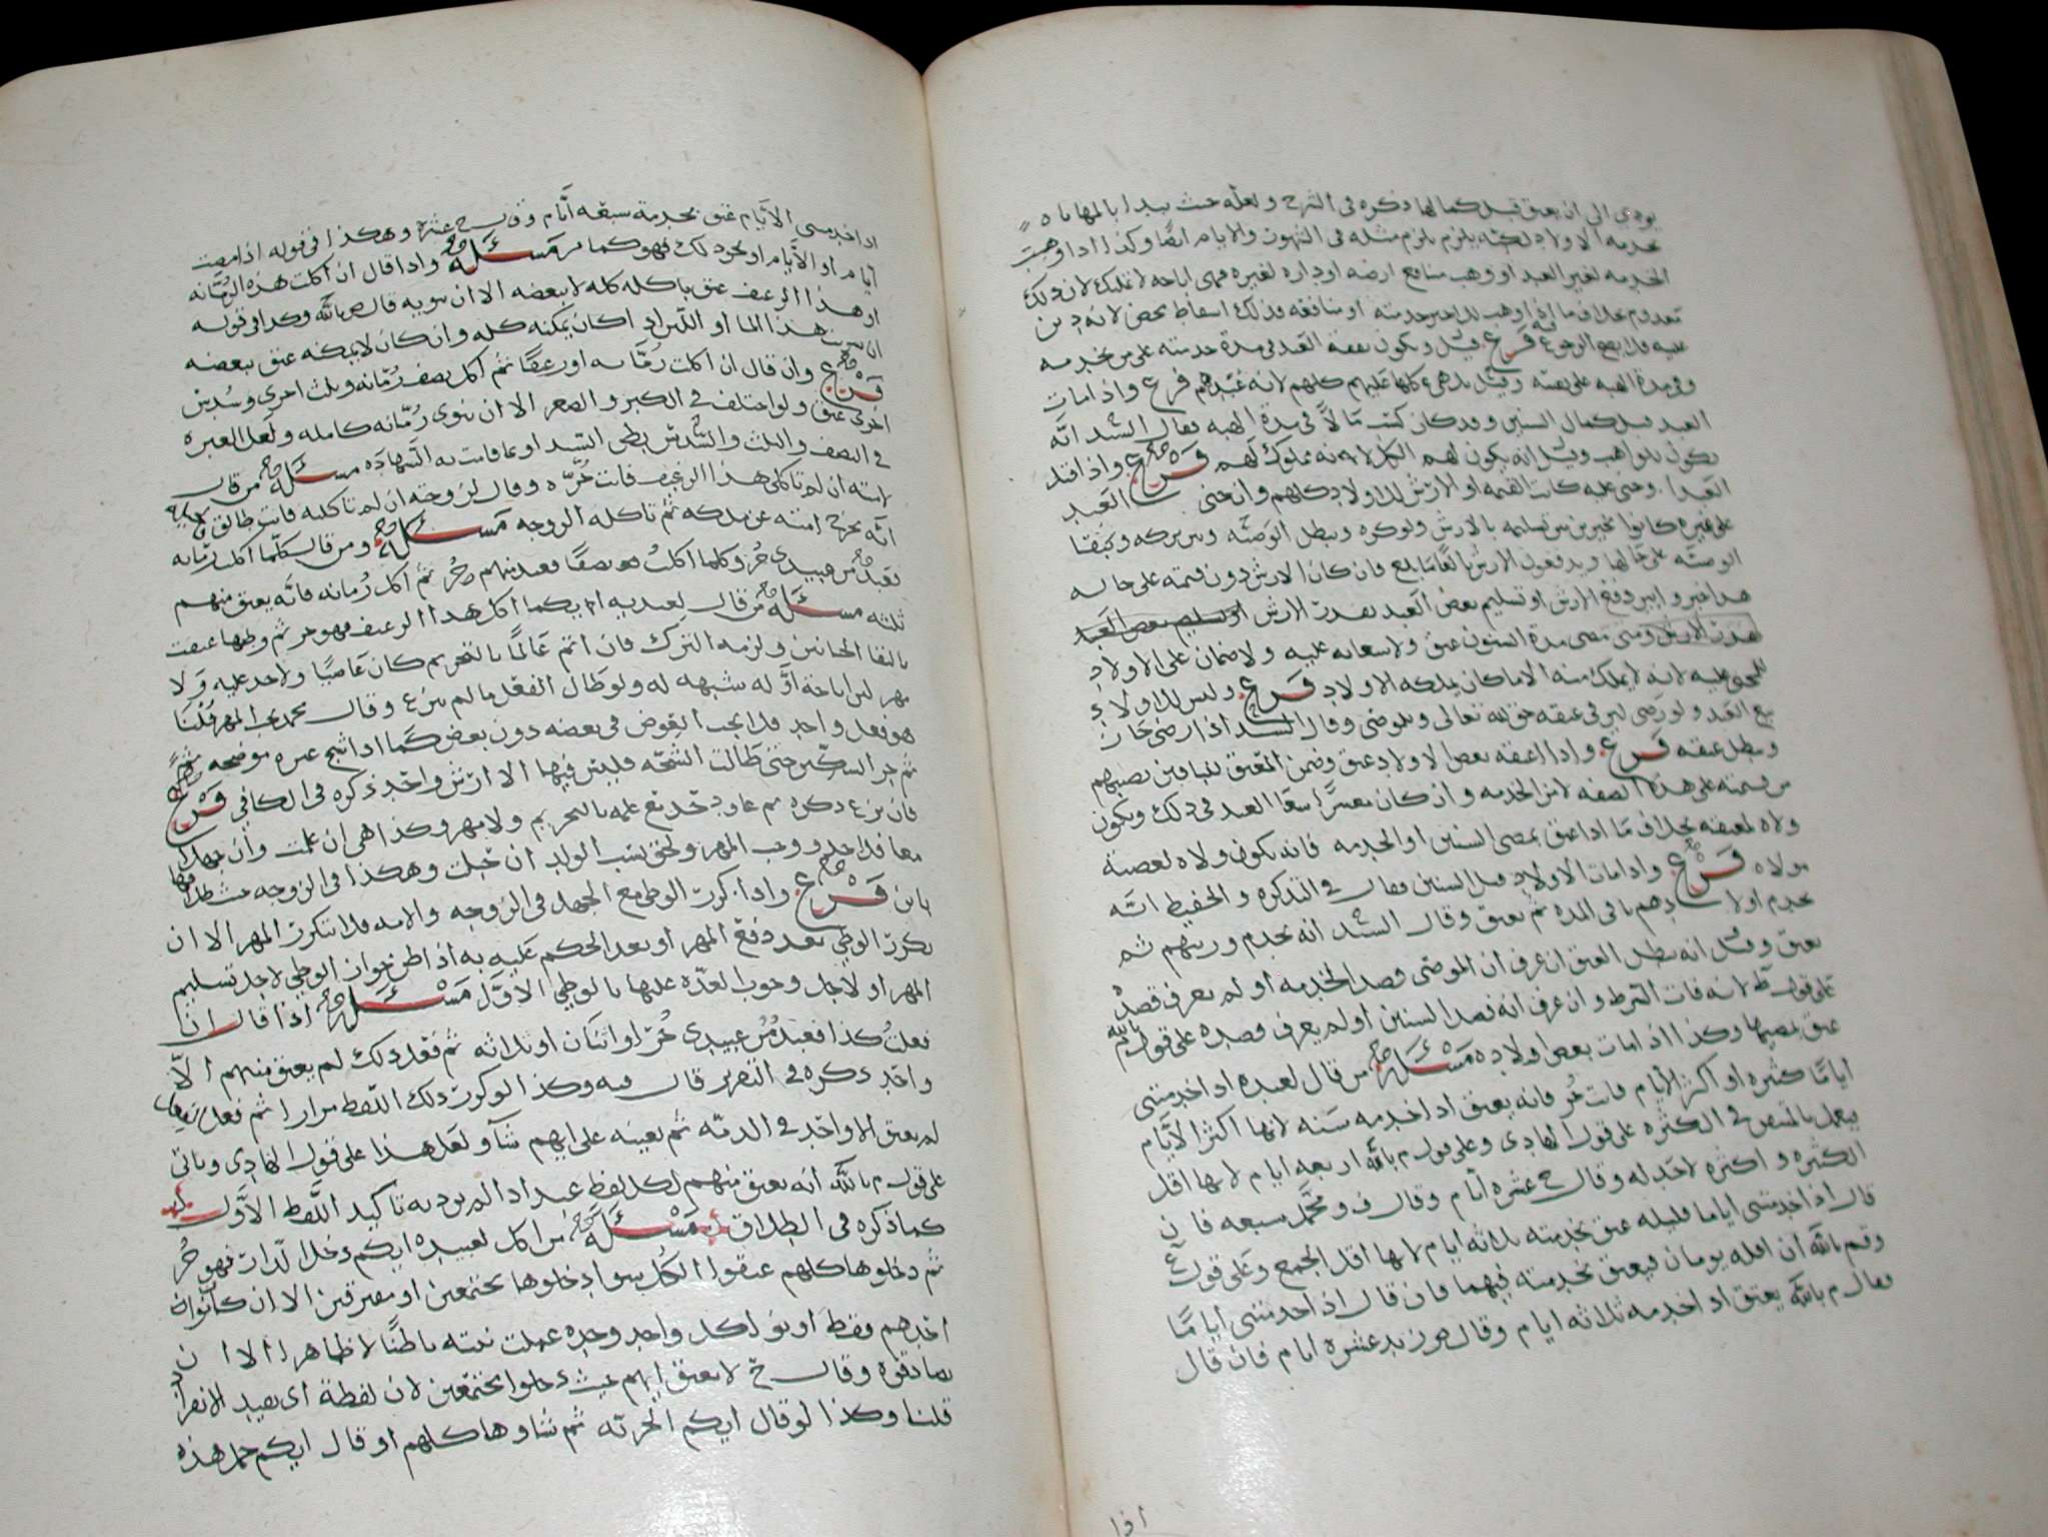 يودي الى ان يعتق قبل كمالها ذكره في الشرح ولعله حيث يبدا بالمهاياه
بخدمه الاولاد لكنه يلزم مثله في الشهور والايام ايضا وكذا اذا وهبت
الخدمه لغير العبد او وهب منافع ارضه او داره لغيره فهي اباحه لا تمليك لان ذلك
معدوم بخلاف ما اذا وهب للعبد خدمته او منافعه فذلك اسقاط محض لانه دين
عليه فلا يصح الرجوع فيه فرع قيل وتكون نفقة العبد في مدة خدمته على من يخدمه
وفي مدة الهبه على نفسه وقيل بل هي كلها عليهم كلهم لانه عبد لهم فرع واذا مات
العبد قبل كمال السنين وقد كان كسب مالا في مدة الهبه فقال السيد انه
يكون للواهب وقيل انه يكون لهم الكل لانه مملوك لهم فرع واذا قتل
العبد او جنى عليه كانت القيمه او الارش للاولاد كلهم وان جنى العبد
على غيره كانوا مخيرين بين تسليمه بالارش ولو كره وتبطل الوصيه وبين تركه وتبقا
الوصيه على حالها ويدفعون الارش بالغا ما بلغ فان كان الارش دون قيمته على حاله
هذا خيروا بين دفع الارش او تسليم بعض العبد بقدر الارش او تسليم بعض العبد
بقدر الارش ومتى مضى مدة السنون عتق ولا سعايه عليه ولا ضمان على الاولاد
للمجني عليه لانه لا يملك منه الا ما كان يملكه الاولاد فرع وليس للاولاد
بيع العبد ولو رضي لان في عتقه حق لله تعالى وللموصي وقال السيد اذا رضي جاز
وبطل عتقه فرع واذا اعتقه بعض الاولاد عتق وضمن المعتق للباقين نصيبهم
من قيمته على هذه الصفه لا من الخدمه وان كان معسرا سعا العبد في ذلك ويكون
ولاه لمعتقه بخلاف ما اذا عتق بمضي السنين او الخدمه فانه يكون ولاه لعصبة
مولاه فرع واذا مات الاولاد قبل السنين فقال في التذكره والحفيظ انه
يخدم اولادهم باقي المده ثم يعتق وقال السيد انه يخدم ورثتهم ثم
يعتق وقيل انه يبطل العتق ان عرف ان الموصي قصد الخدمه او لم يعرف قصده
على قول ط لانه فات الشرط وان عرف انه قصد السنين او لم يعرف قصده على قول م بالله
عتق بمضيها وكذا اذا مات بعض اولاده مسئله من قال لعبده اذا خدمتني
اياما كثيره او اكثر الايام فانت حر فانه يعتق اذا خدمه سنه لانها اكثر الايام
يعمل بالمتيقن في الكثره على قول الهادي وعلى قول م بالله اربعه ايام لانها اقل
الكثره واكثره لا حد له وقال ح عشره أيام وقال ف ومحمد سبعه فان
قال اذا خدمتني اياما قليله عتق بخدمته ثلاثه ايام لانها اقل الجمع وعلى قول ع
وقم بالله ان اقله يومان فيعتق بخدمته فيهما فان قال اذا خدمتني اياما
فقال م بالله يعتق اذا خدمه ثلاثه ايام وقال ص زيد عشره ايام فان قال
اذا
اذا خدمتني الايام عتق بخدمة سبعه أيام وقال ح عشره وهكذا في قوله اذا مضت
أيام او الأيام او نحو ذلك فهو كما مر مسئله واذا قال ان اكلت هذه الرمانه
او هذا الرغيف عتق باكله كله لا ببعضه الا ان ينويه قال ص بالله وكذا في قوله
ان شربت هذا الما او اللبن اذا كان يمكنه كله وان كان لا يمكنه عتق ببعضه
فرع وان قال ان اكلت رمانه او رغيفا ثم اكل نصف رمانه وثلث اخرى وسدس
اخرى عتق ولو اختلف في الكبر والصغر الا ان ينوي رمانه كامله ولعل العبره
في النصف والثلث والسدس بظن السيد او بما قامت به الشهاده مسئله من قال
لامته ان لم تاكلي هذا الرغيف فانت حره وقال لزوجته ان لم تاكليه فانت طالق فالحيله
انه يخرج امته عن ملكه ثم تاكله الزوجه مسئله ومن قال كلما اكلت رمانه
فعبد من عبيدي حر وكلما اكلت نصفا فعبد منهم حر ثم اكل رمانه فانه يعتق منهم
ثلثه مسئله من قال لعبديه ايكما اكل هذا الرغيف فهو حر ثم وطيها عتقت
بالتقا الختانين ولزمه الترك فان اتم عالما بالتحريم كان عاصيا ولا حد عليه ولا
مهر لان اباحة اوله شبهه له ولو طال الفعل ما لم ينزع وقال محمد يجب المهر قلنا
هو فعل واحد فلا يجب العوض في بعضه دون بعض كما اذا شج غيره موضحه ثم
ثم جر السكين حتى طالت الشجه فليس فيها الا ارش واحد ذكره في الكافي فرع
فان نزع ذكره ثم عاود حد مع علمه بالتحريم ولا مهر وكذا هي ان علمت وان جهلا
معا فلا حد ووجب المهر ولحق نسب الولد ان حبلت وهكذا في الزوجه مشروطا
باين فرع واذا تكرر الوطي مع الجهل في الزوجه والامه فلا يتكرر المهر الا ان
يكرر الوطي بعد دفع المهر او بعد الحكم عليه به اذا ظن جواز الوطي لاجل تسليم
المهر او لاجل وجوب العده عليها بالوطي الاول مسئله اذا قال ان
فعلت كذا فعبد من عبيدي حر او اثنان او ثلاثه ثم فعل ذلك لم يعتق منهم الا
واحد ذكره في التقرير قال فيه وكذا لو كرر ذلك اللفظ مرارا ثم فعل
لم يعتق الا واحد في الذمه ثم يعينه على ايهم شآ ولعل هذا على قول الهادي وياتي
على قول م بالله انه يعتق منهم لكل لفظ عبد اذا لم يرد به تاكيد اللفظ الاول
كما ذكره في الطلاق مسئله من قال لعبيده ايكم دخل الدار فهو حر
ثم دخلوها كلهم عتقوا الكل سوا دخلوها مجتمعين او مفترقين الا ان كان نوى
احدهم فقط او نوى كل واحد وحده عملت نيته باطنا لا ظاهرا الا ان
يصادقوه وقال ح لا يعتق ايهم حيث دخلوا مجتمعين لان لفظة اي يفيد الانفراد
قلنا وكذا لو قال ايكم اخبرته ثم شاوها كلهم او قال ايكم حمل هذه